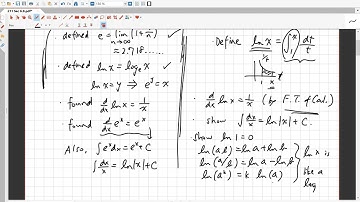 defined e = lim (1+1/n)^n
n→∞
≈ 2.718......
• defined ln x = log_e x ✓
ln x = y ⇒ e^y = x
• found d/dx ln x = 1/x
• found d/dx e^x = e^x
Also, ∫e^x dx = e^x + C
∫dx/x = ln|x| + C
Define ln x = ∫_1^x dt/t
• d/dx ln x = 1/x (by F.T. of Cal.)
show ∫dx/x = ln|x| + C.
show ln 1 = 0
ln(ab) = ln a + ln b
ln(a/b) = ln a - ln b
ln(a^k) = k ln(a)
ln x is
like a
log